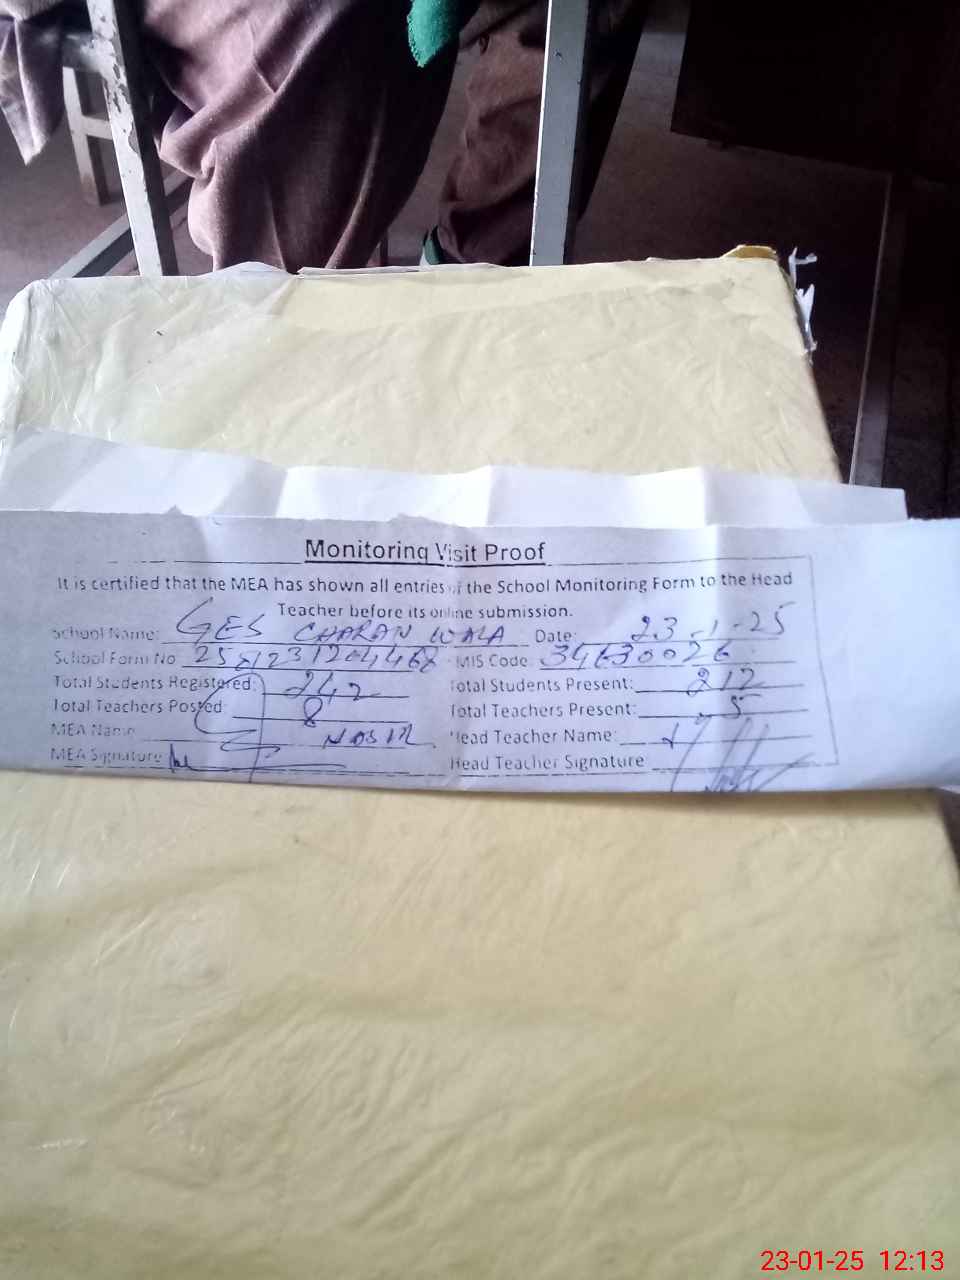 Monitoring Visit Proof
It is certified that the MEA has shown all entries of the School Monitoring Form to the Head
Teacher before its online submission.
School Name: GES CHARAN WALA Date: 23-1-25
School Form No MIS Code: 34630026
Total Students Registered: 242 Total Students Present: 212
Total Teachers Posted: 8 Total Teachers Present: 5
MEA Name Head Teacher Name:
MEA Signature Head Teacher Signature
23-01-25 12:13